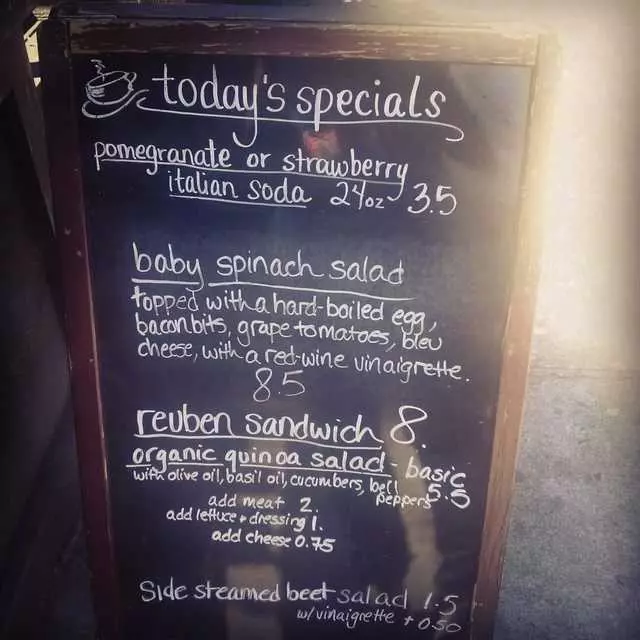 today's specials
pomegranate or strawberry
italian soda 24oz 3.5
baby spinach salad
topped with a hard-boiled egg,
bacon bits, grape tomatoes, bleu
cheese, with a red-wine vinaigrette.
8.5
reuben sandwich 8.
organic quinoa salad - basic
with olive oil, basil oil, cucumbers, bell 5.5
peppers
add meat 2.
add lettuce + dressing 1.
add cheese 0.75
Side steamed beet salad 1.5
w/ vinaigrette + 0.50